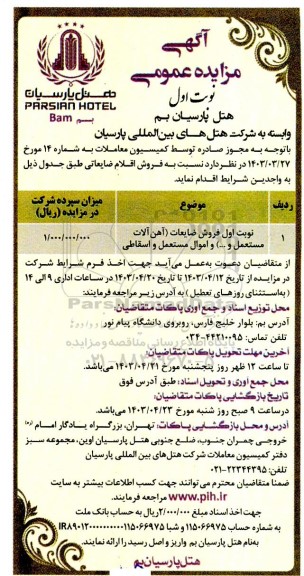 آگهی
مزایده عمومی
نوبت اول
هتل پارسیان بم
هتل پارسیان
PARSIAN HOTEL
Bam بم
وابسته به شرکت هتل های بین‌المللی پارسیان
باتوجه به مجوز صادره توسط کمیسیون معاملات به شماره ۱۴ مورخ
۱۴۰۳/۰۳/۲۷ در نظر دارد نسبت به فروش اقلام ضایعاتی طبق جدول ذیل
به واجدین شرایط اقدام نماید.
ردیف موضوع میزان سپرده شرکت در مزایده (ریال)
۱ نوبت اول فروش ضایعات (آهن آلات مستعمل و ...) و اموال مستعمل و اسقاطی ۱/۰۰۰/۰۰۰/۰۰۰
از متقاضیان دعوت بعمل می‌آید جهت اخذ فرم شرایط شرکت
در مزایده از تاریخ ۱۴۰۳/۰۴/۱۲ تا تاریخ ۱۴۰۳/۰۴/۲۰ در ساعات اداری ۹ الی ۱۴
(باستثنای روزهای تعطیل) به آدرس زیر مراجعه فرمایند:
محل توزیع اسناد و جمع آوری پاکات متقاضیان:
آدرس بم: بلوار خلیج فارس، روبروی دانشگاه پیام نور
تلفن تماس: ۰۳۴-۴۴۲۱۰۰۹۵
آخرین مهلت تحویل پاکات متقاضیان:
تا ساعت ۱۲ ظهر روز پنجشنبه مورخ ۱۴۰۳/۰۴/۲۱ می‌باشد.
محل جمع آوری و تحویل اسناد: طبق آدرس فوق
تاریخ بازگشایی پاکات متقاضیان:
درساعت ۹ صبح روز شنبه مورخ ۱۴۰۳/۰۴/۲۳ می‌باشد.
آدرس و محل بازگشایی پاکات: تهران، بزرگراه یادگار امام (ره)
خروجی چمران جنوب، ضلع جنوبی هتل پارسیان اوین، مجموعه سبز
دفتر کمیسیون معاملات شرکت هتل‌های بین المللی پارسیان
تلفن: ۲۲۳۴۴۳۹۵-۰۲۱
ضمنا متقاضیان محترم می توانند جهت کسب اطلاعات بیشتر به سایت
www.pih.ir مراجعه فرمایند.
جهت اخذ اسناد مبلغ ۲/۰۰۰/۰۰۰ ریال به حساب بانک ملت
به شماره حساب ۱۱۵۰۶۶۹۷۵ و شبا
به نام هتل پارسیان بم واریز و اصل رسید را ارائه نمایند.
هتل پارسیان بم